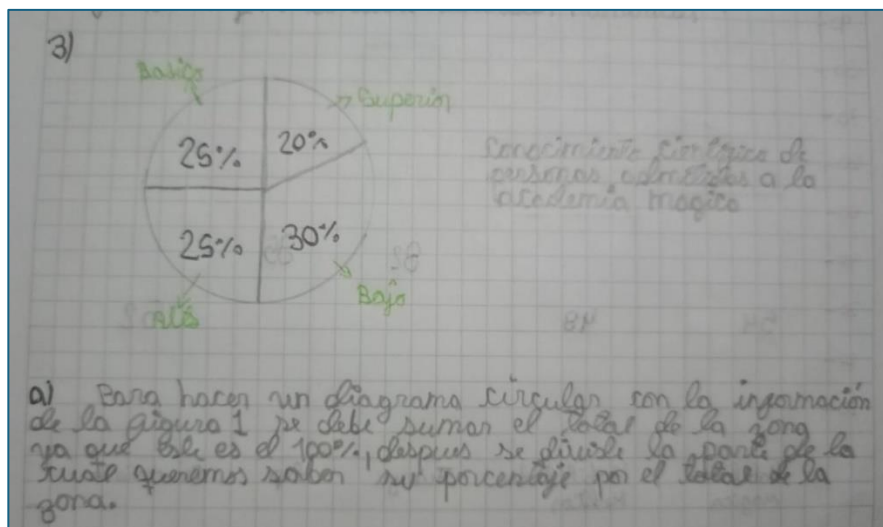 3)
Basico
Superior
25%
20%
25%
30%
Alto
Bajo
conocimiento de
personas admitidas a la
academia magica
a) Para hacer un diagrama circular con la información
de la figura 1 se debe sumar el total de la zona
ya que este es el 100%, despues se divide la parte de la
cual queremos saber su porcentaje por el total de la
zona.